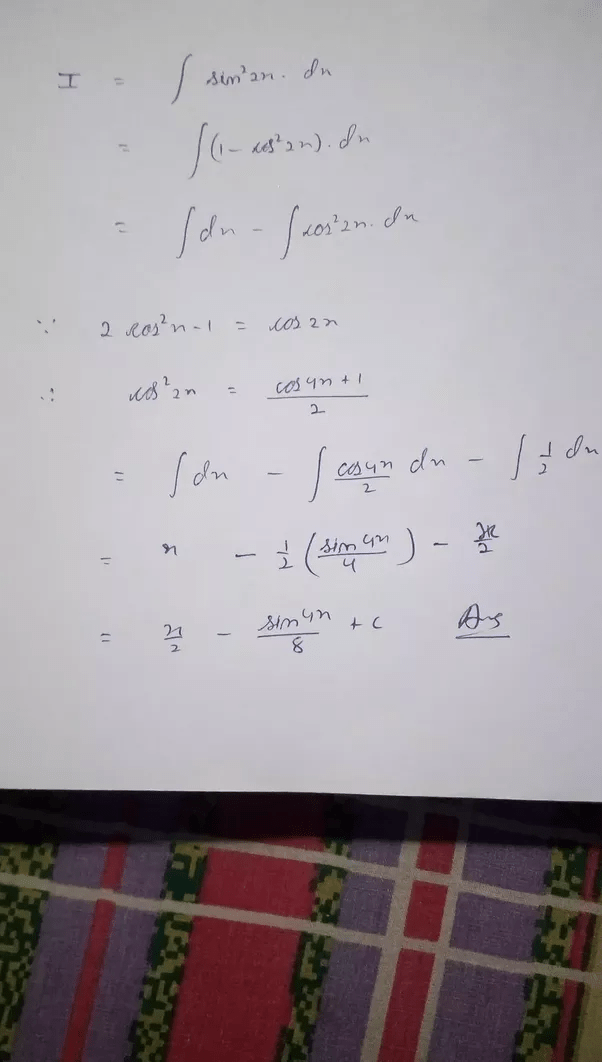 I = ∫ sin²2x. dx
= ∫(1 - cos²2x). dx
= ∫dx - ∫cos²2x. dx
∵ 2 cos²x - 1 = cos 2x
∴ cos²2x = (cos4x + 1)/2
= ∫dx - ∫ cos4x/2 dx - ∫ 1/2 dx
= x - 1/2 (sin4x/4) - x/2
= x/2 - sin4x/8 + c Ans